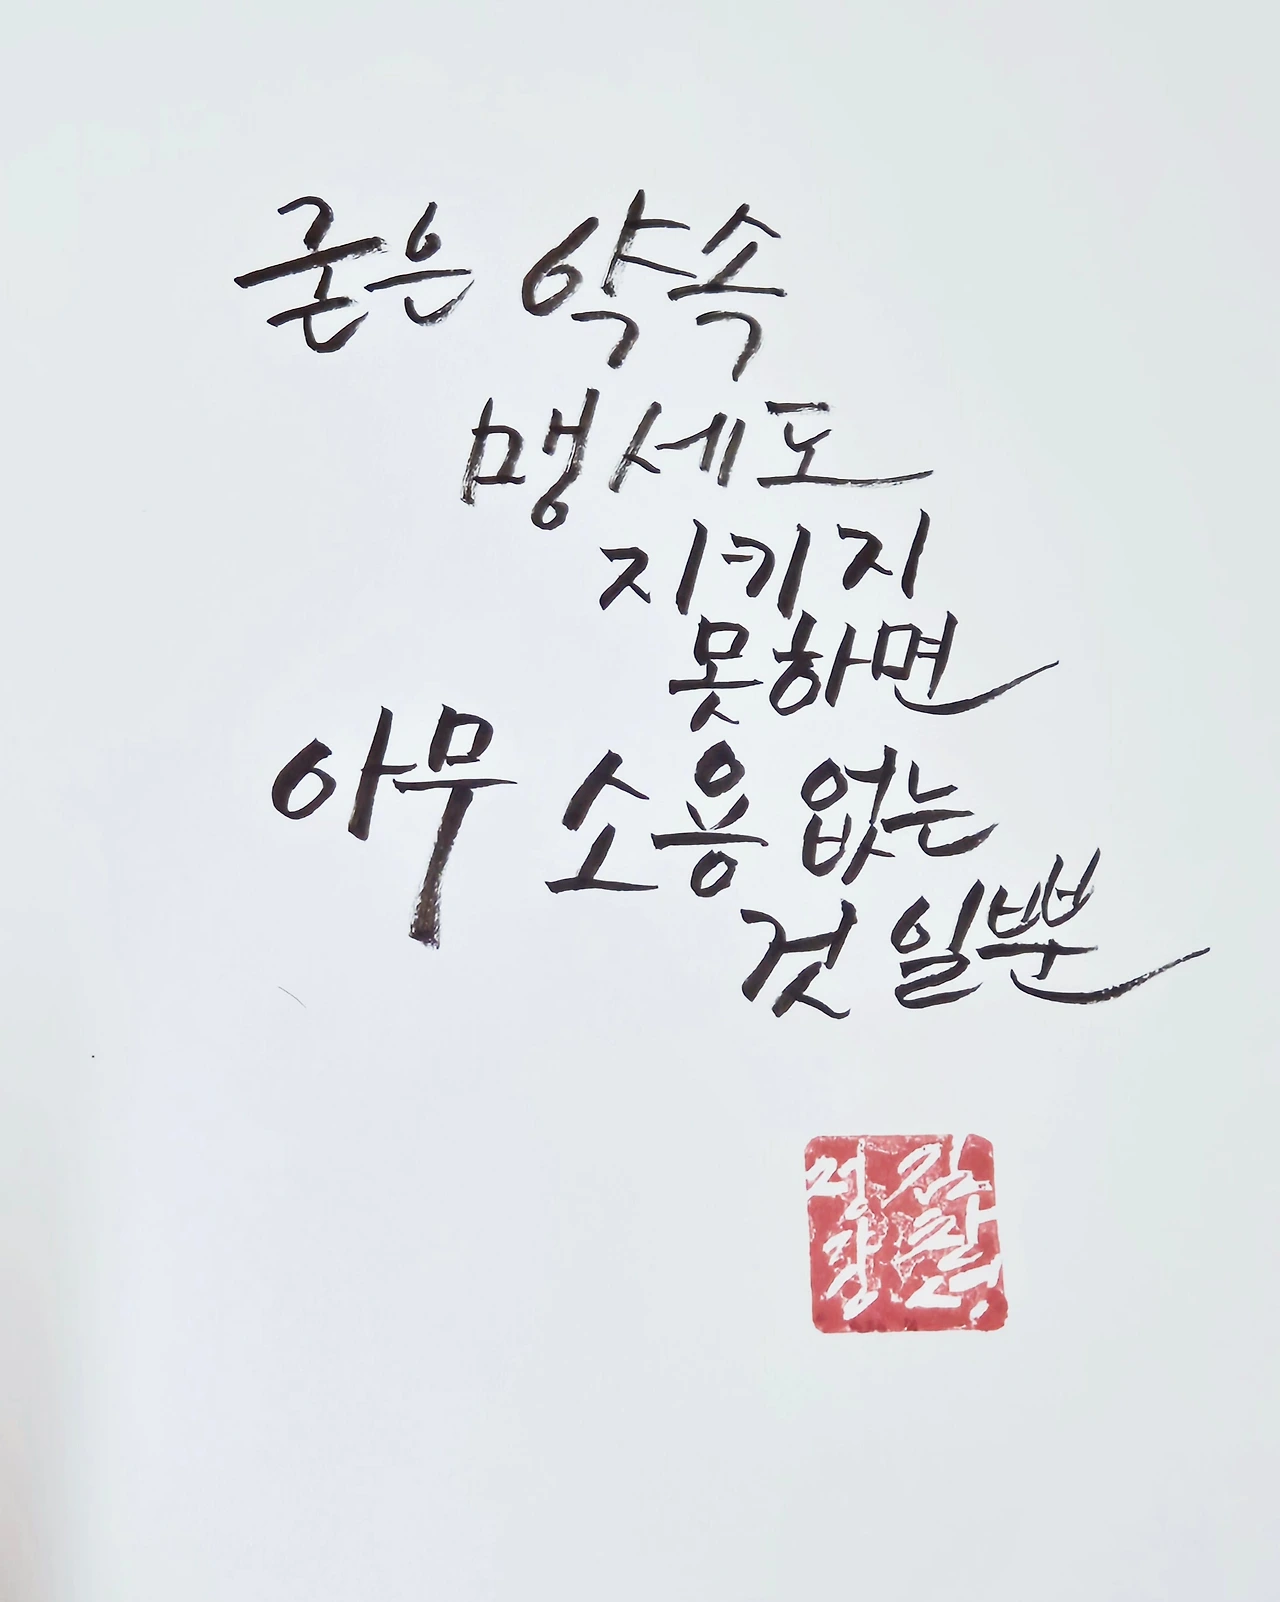 굳은 약속
맹세도
지키지
못하면
아무 소용 없는
것 일뿐